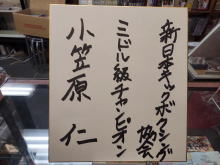 新日本キックボクシング
協会
ミドル級チャンピオン
小笠原 仁